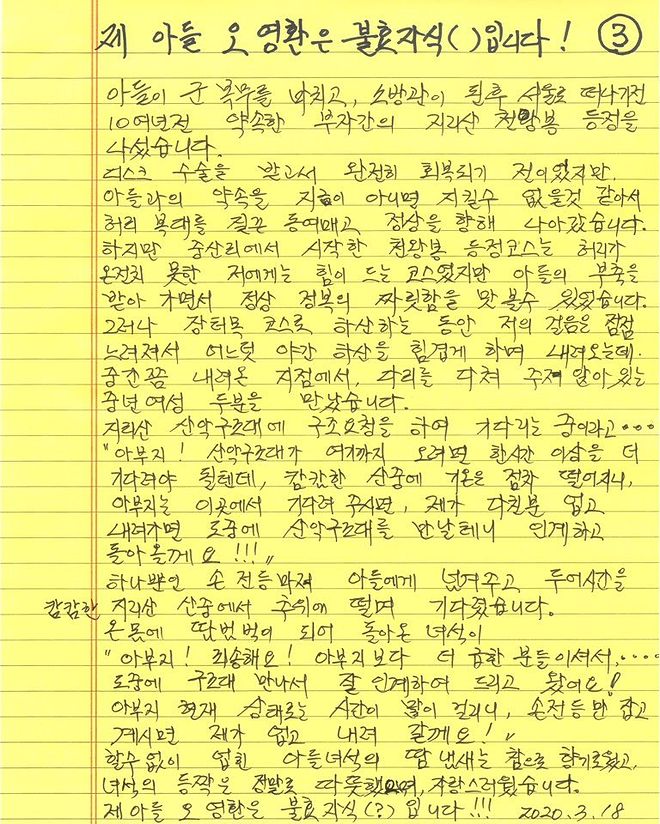 제 아들 오영환은 불효자식( )입니다! ③
아들이 군 복무를 마치고, 소방관이 된후 서울로 떠나기전
10여년전 약속한 부자간의 지리산 천왕봉 등정을
나섰습니다.
디스크 수술을 받고서 완전히 회복되기 전이었지만,
아들과의 약속을 지금이 아니면 지킬수 없을것 같아서
허리 복대를 질끈 동여매고 정상을 향해 나아갔습니다.
하지만 중산리에서 시작한 천왕봉 등정코스는 허리가
온전치 못한 저에게는 힘이 드는 코스였지만 아들의 부축을
받아 가면서 정상 정복의 짜릿함을 맛볼수 있었습니다.
그러나 장터목 코스로 하산하는 동안 저의 걸음은 점점
느려져서 어느덧 야간 하산을 힘겹게 하며 내려오는데.
중간쯤 내려온 지점에서, 다리를 다쳐 주저앉아 있는
중년여성 두분을 만났습니다.
지리산 산악구조대에 구조요청을 하여 기다리는 중이라고...
"아부지! 산악구조대가 여기까지 오려면 한시간 이상을 더
기다려야 될텐데, 캄캄한 산중에 기온은 점차 떨어지니,
아부지는 이곳에서 기다려 주시면, 제가 다친분 업고
내려가면 도중에 산악구조대를 만날테니 인계하고
돌아올게요!!!"
하나뿐인 손전등마저 아들에게 넘겨주고 두어시간을
캄캄한 지리산 산중에서 추위에 떨며 기다렸습니다.
온몸에 땀범벅이 되어 돌아온 녀석이
"아부지! 죄송해요! 아부지보다 더 급한 분들이셔서,....
도중에 구조대 만나서 잘 인계하여 드리고 왔어요!
아부지 현재 상태로는 시간이 많이 걸리니, 손전등만 잡고
계시면 제가 업고 내려 갈께요!"
할수없이 업힌 아들녀석의 땀냄새는 참으로 향기로웠고,
녀석의 등짝은 정말로 따뜻했으며, 자랑스러웠습니다.
제아들 오영환은 불효자식(?)입니다!!! 2020.3.18